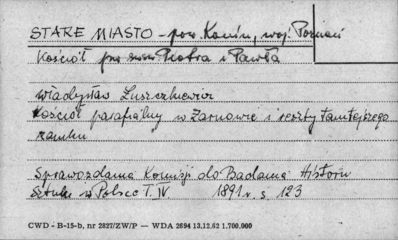 STARE MIASTO - pow. Konin, woj. Poznań
Kościół pw. św. Piotra i Pawła
Władysław Łuszczkiewicz
Kościół parafialny w Żarnowie i reszty tamtejszego
zamku
Sprawozdania Komisji do Badania Historii
Sztuki w Polsce T. IV 1891 r. s. 123
CWD - B-15-b, nr 2827/ZW/P — WDA 2694 13.12.62 1.700.000